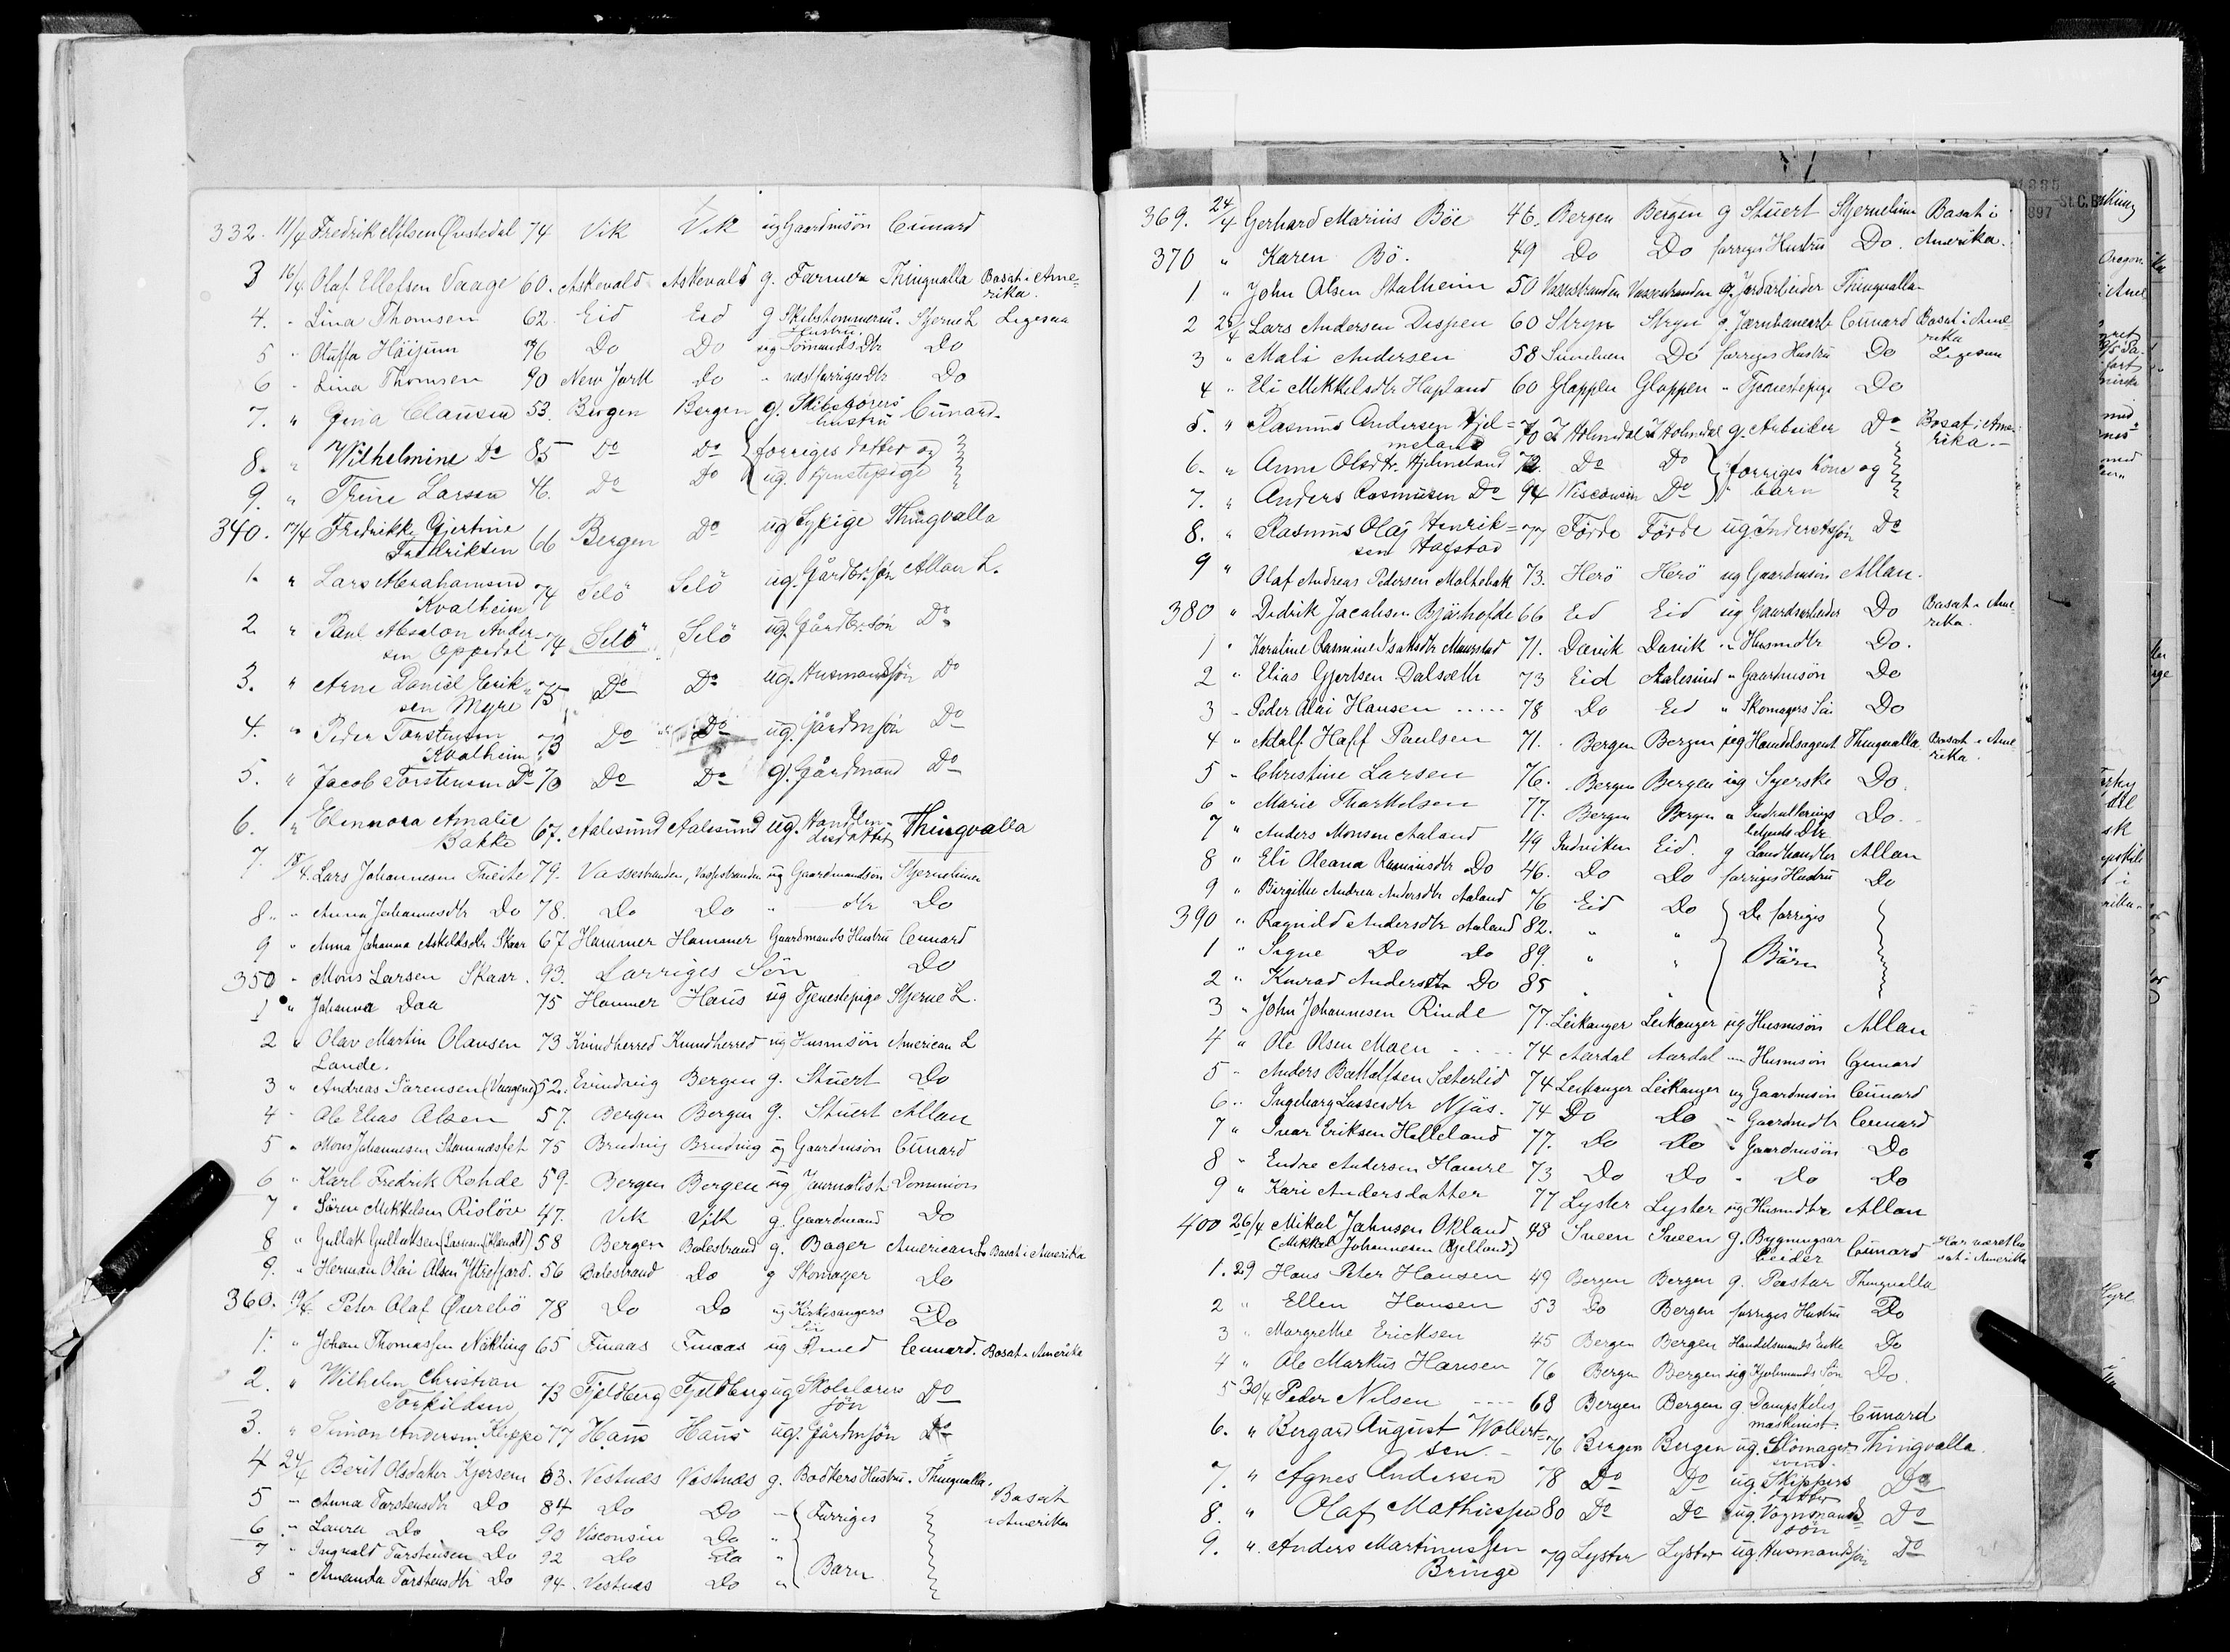 332. 11/4 Fredrik Nilsen Øvstedal 74 Vik Vik ug Gaardmsön Cunard
3 16/4 Olaf Ellefsen Vaage 60. Askevold Askevold g. Farmer Thingvalla Bosat i Ame=
rika.
4. " Lina Thomsen 62. Eid Eid g Skibstømmerm. Stjerne L Ligesaa
Hustru
5 " Oluffa Håijum 76 Do Do ug Sömands Dtr Do
6 " Lina Thomsen 90 New York Do " næst forriges Dtr Do
7. " Gina Clausen 53. Bergen Bergen g. Skibsförers Cunard
hustru
8. " Wilhelmine Do 85 Do Do forriges datter og
9. " Trine Larsen 46. Do Do ug. tjenstepige
340. 17/4 Fredrikke Gjertine
Fredriksen 66 Bergen Do ug Sypige Thingvalla
1. " Lars Abrahamsen
Kvalheim 74 Selö Selö ug. Gårdbr. søn Allan L.
2. " Paul Absalon Ander-
sen Oppedal 74 Selö Selö ug. Gårdbr. søn Do
3. " Arne Daniel Erik-
sen Myre 75 Do Do ug. Husmandssøn Do
4. " Peder Torstensen
Kvalheim 73 Do Do ug. Gårdmsøn Do
5. " Jacob Torstensen Do 70 Do Do g. Gårdmand Do
6. " Elennora Amalie
Bakke 67. Aalesund Aalesund ug. Handlen-
desdatter Thingvalla
7. 18/4. Lars Johannesen Tveite 79. Vossestranden, Vossestranden ug Gaardmandsøn Stjernelinien
8. " Anna Johannesdtr Do 78. Do Do " dtr Do
9 " Anna Johanna Askildsdtr Skaar 67 Hammer Hammer Gaardmands Hustru Cunard
350 " Mons Larsen Skaar. 93. Forriges Sön Do
1 " Johanna Daa 75 Hammer Haus ug Tjenestepige Stjerne L.
2 " Olav Martin Olausen 73 Kvindherred Kvindherred ug Husmsön American L
Lande.
3 " Andreas Sörensen (Vaagene) 52. Evindvig Bergen g. Stuert Do
4 " Ole Elias Olsen 57. Bergen Bergen g. Stuert Allan
5 " Mons Johannesen 75 Brudvig Brudvig ug Gaardmsön Cunard
6 " Karl Fredrik Rohde 59. Bergen Bergen ug Journalist Dominion
7 " Sören Mikkelsen Rislöv 47. Vik Vik g. Gaardmand Do
8 " Gullak Gullaksen 58 Bergen Balestrand g. Bager American L Bosat i Amerika
9. " Herman Olai Olsen Yttrefjord. 56 Balestrand Do g Skomager Do
360. 19/4. Peter Olaf Øvrebö 78 Do Do ug Kirkesangers Do
Sön
1. " Johan Thomassen Nökling 65 Finaas Finaas ug Smed Cunard. Bosat i Amerika
2. " Wilhelm Christian
Torkildsen 73 Fjeldberg Fjeldberg ug Skolelærers Do
søn
3. " Simon Andersen Kleppe 77 Haus Haus ug. Gårdmsøn Do
4 24/4 Berit Olsdatter Kjersem 63. Vestnæs Vestnæs g. Bødkers Hustru. Thingvalla.
5 " Anna Torstensdtr Do 84 Do Do " Forriges Bosat
i Amerika
6 " Laura Do Do 90 Visconsin Do "
7 " Ingvald Torstensen Do 92 Do Do "
8 " Amanda Torstensdtr Do 94. Vestnæs Do " Barn
369. 24/4 Gerhard Marius Böe 46. Bergen Bergen g Stuert Stjernelinien Bosat i
370 " Karen Bö. 49 Do Do forriges Hustru Do. Amerika.
1 " John Olsen Stalheim 50 Vossestranden Vossestranden g. Jordarbeider Thingvalla
2 25/4 Lars Andersen Dispen 60 Stryn Stryn g. Jærnbanearb Cunard Bosat i Ame-
rika
3 " Mali Andersen 58 Do forriges Hustru Do Ligesaa
4 " Eli Mikkelsdtr Hagland 60 Gloppen Gloppen " Tjenestepige Do
5. " Rasmus Andersen Hjel=
meland 70 Y Holmedal Y Holmedal g. Arbeider Do Bosat i Ame=
rika.
6. " Anne Olsdtr. Hjelmeland 72. Do Do forriges kone og
7. " Anders Rasmusen Do 94 Wisconsin Do barn
8. " Rasmus Olaj Henrik=
sen Hafstad 77 Förde Förde ug Do
9 " Olaf Andreas Pedersen Moltebak 73. Herö Herö ug Gaardmsön Allan.
380 " Didrik Jacobsen Bjørhofde 66 Eid Eid ug Gaardsarbeider Do Bosat i Ame
rika.
1 " Karoline Rasmine Isaksdtr Maurstad 71. Davik Davik " Husmdtr Do.
2 " Elias Gjertsen Dalsæth 73 Eid Aalesund " Gaardmsön Do
3 " Peder Olai Hansen 78 Do Eid " Skomagers Sön Do
4 " Adolf Hoff Paulsen 71. Bergen Bergen ug Handelsagent Thingvalla. Bosat i Ame
rika.
5 " Christine Larsen 76. Bergen Bergen ug Syerske Do
6 " Marie Thorkelsen 77. Bergen Bergen " Do.
7 " Anders Monsen Aaland 49 Indviken Eid g Landhandler Allan
8 " Eli Oleana Rasmusdtr Do 46. Do Do forriges Hustru Do
9 " Birgithe Andrea Andersdtr Aaland 76 Eid Do De forriges
390 " Ragnild Andersdtr Aaland 82. " "
1 " Signe Do Do 89 " " Börn
2 " Konrad Anderssön Do 85 " "
3 " John Johannesen Rinde 77. Leikanger Leikanger ug Husmsön Allan
4 " Ole Olsen Moen 74 Aardal Aardal " Husmsön Cunard
5 " Anders Bottolfsen Sæterlid 74 Leikanger Leikanger ug Gaardmsön Cunard
6 " Ingeborg Lassesdtr Njös. 74 Do Do " Gaardmdtr Cunard
7 " Ivar Eriksen Helleland 77. Do Do " Gaardmsön Do
8 " Endre Andersen Hamre 73 Do Do " Do Do
9 " Kari Andersdatter 77 Lyster Lyster ug Husmdtr Allan
400 26/4 Mikal Johnsen Økland 48 Sveen Sveen g. Bygningsar
beider Cunard Har været bo
sat i Amerika
(Mikkel Johannesen Kjelland)
1. 29 Hans Peter Hansen 49 Bergen Bergen g. Pastor Thingvalla
2 " Ellen Hansen 53 Do Bergen forriges Hustru Do
3 " Margrethe Ericksen 45 Bergen Bergen Handelsmands Enke Do
4 " Ole Markus Hansen 76 Bergen Bergen ug Sön Do.
5 30/4 Peder Nilsen 68 Bergen Bergen g Dampskibs
maskinist. Cunard
6. " Bergard August Wollert=
sen 76 Bergen Bergen ug. Skomager Thingvalla.
svend
7. " Agnes Andersen 78 Do Do ug. Skippers Do
datter
8. " Olaf Mathiesen 80 Do Do ug. Vognmands Do
søn
9. " Anders Martinussen
Bringe 79 Lyster Lyster ug. Husmandssøn Do
21